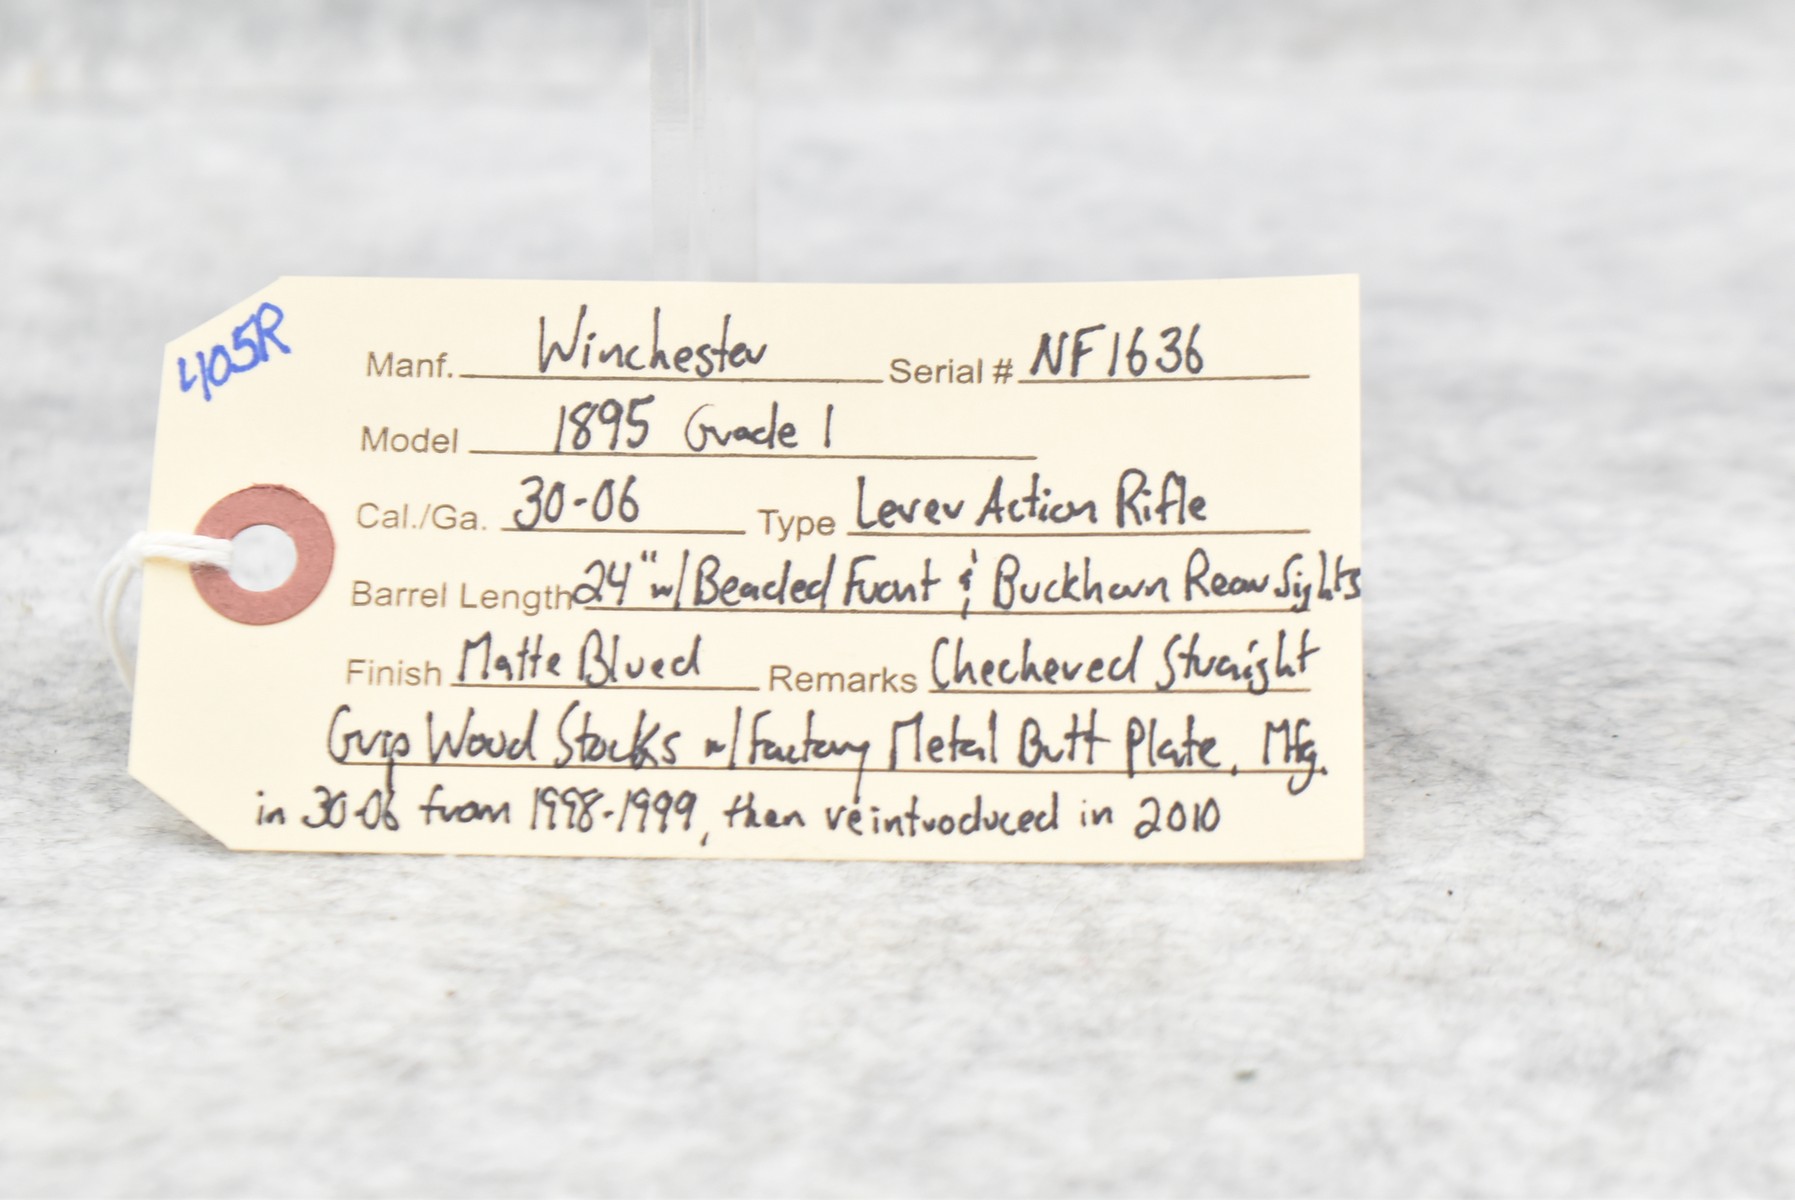 405R
Manf. Winchester Serial # NF1636
Model 1895 Grade 1
Cal./Ga. 30-06 Type Lever Action Rifle
Barrel Length 24" w/ Beaded Front & Buckhorn Rear Sights
Finish Matte Blued Remarks Checkered Straight
Grip Wood Stocks w/ Factory Metal Butt Plate. Mfg.
in 30-06 from 1998-1999, then reintroduced in 2010